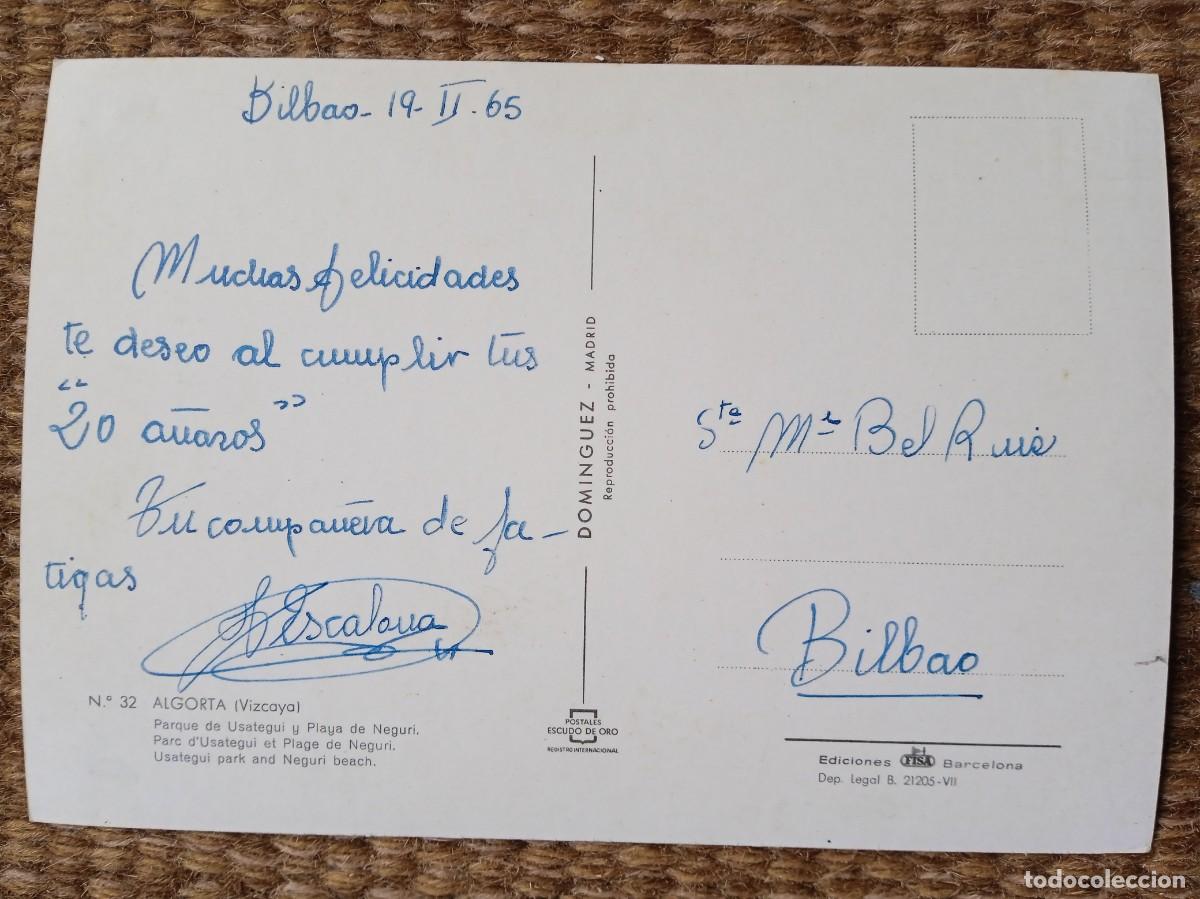 Bilbao - 19 - II - 65
Muchas felicidades
te deseo al cumplir tus
"20 añazos"
Tu compañera de fa-
tigas
Escalona
N.º 32 ALGORTA (Vizcaya)
Parque de Usategui y Playa de Neguri.
Parc d'Usategui et Plage de Neguri.
Usategui park and Neguri beach.
DOMINGUEZ - MADRID
Reproducción prohibida
POSTALES
ESCUDO DE ORO
REGISTRO INTERNACIONAL
Sta Mª Bel Ruiz
Bilbao
Ediciones FISA Barcelona
Dep. Legal B. 21205-VII
todocoleccion